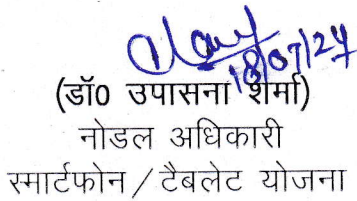 18/07/24
(डॉ0 उपासना शर्मा)
नोडल अधिकारी
स्मार्टफोन / टैबलेट योजना